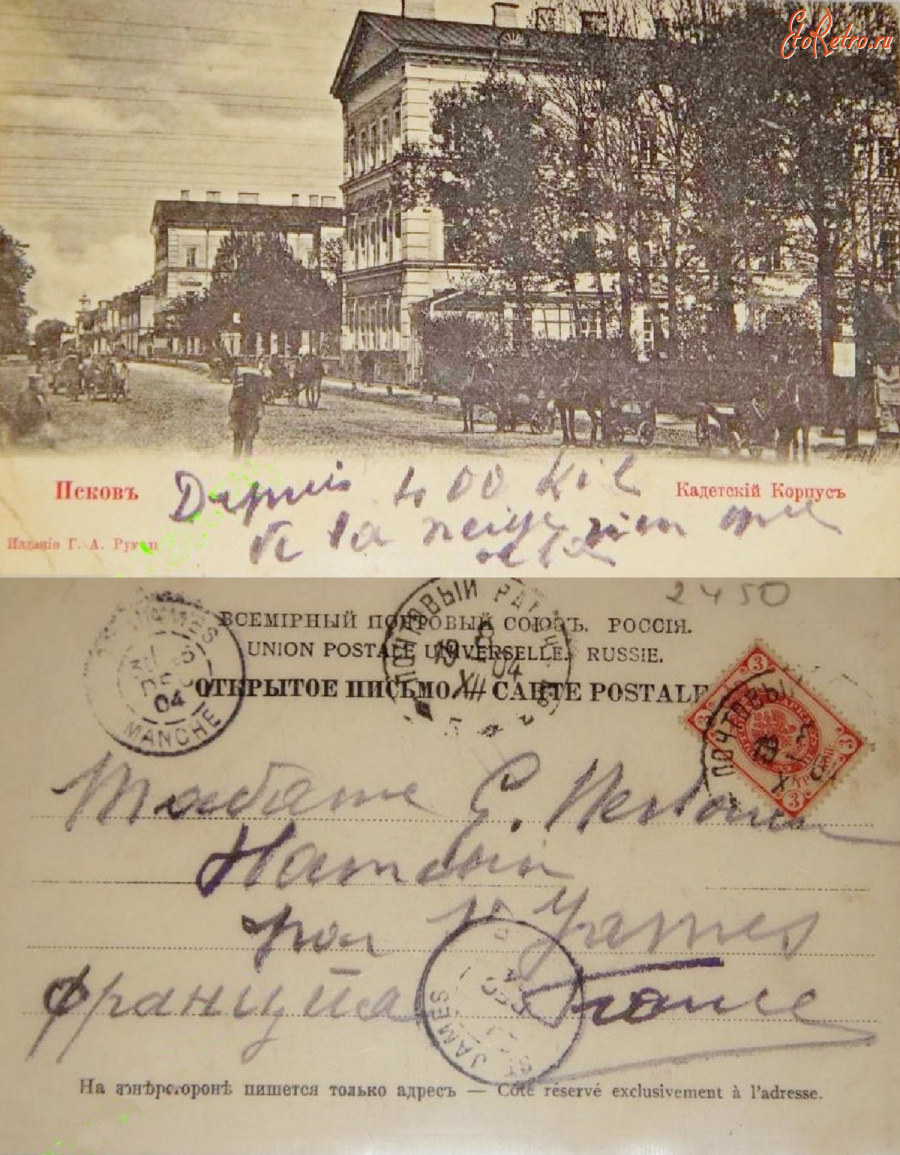 EtoRetro.ru
Псковъ
Кадетскій Корпусъ
Depuis 400 Kil
de la neige rien que
cela
Изданіе Г. А.
2450
ВСЕМІРНЫЙ ПОЧТОВЫЙ СОЮЗЪ. РОССІЯ.
UNION POSTALE UNIVERSELLE. RUSSIE.
ОТКРЫТОЕ ПИСЬМО. — CARTE POSTALE
ST JAMES
04
MANCHE
ПОЧТОВЫЙ
8
19 04
XII
5
3
3
3
ПОЧТОВЫЙ
Madame E.
par St James
Франція France
ST JAMES
На этой сторонѣ пишется только адресъ — Côté réservé exclusivement à l'adresse.